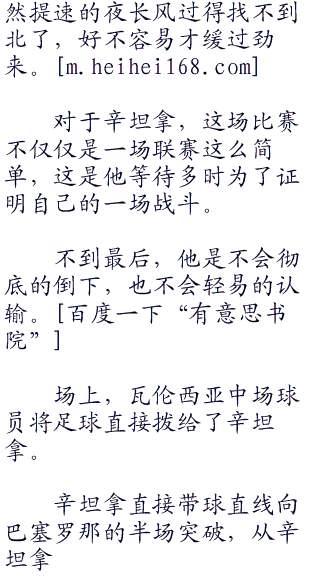 然提速的夜长风过得找不到
北了，好不容易才缓过劲
来。[m.heihei168.com]
对于辛坦拿，这场比赛
不仅仅是一场联赛这么简
单，这是他等待多时为了证
明自己的一场战斗。
不到最后，他是不会彻
底的倒下，也不会轻易的认
输。[百度一下“有意思书
院”]
场上，瓦伦西亚中场球
员将足球直接拨给了辛坦
拿。
辛坦拿直接带球直线向
巴塞罗那的半场突破，从辛
坦拿